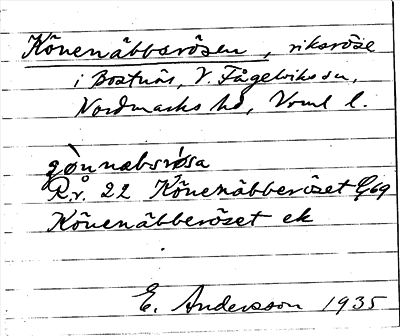 Könenäbbsrösen, riksröse
i Bostnäs, V. Fågelviks sn,
Nordmarks hd, Vrml l.
gönnabsrösa
R.r. 22 Könenäbberöset G69
Könenäbberöset ek
E. Andersson 1935